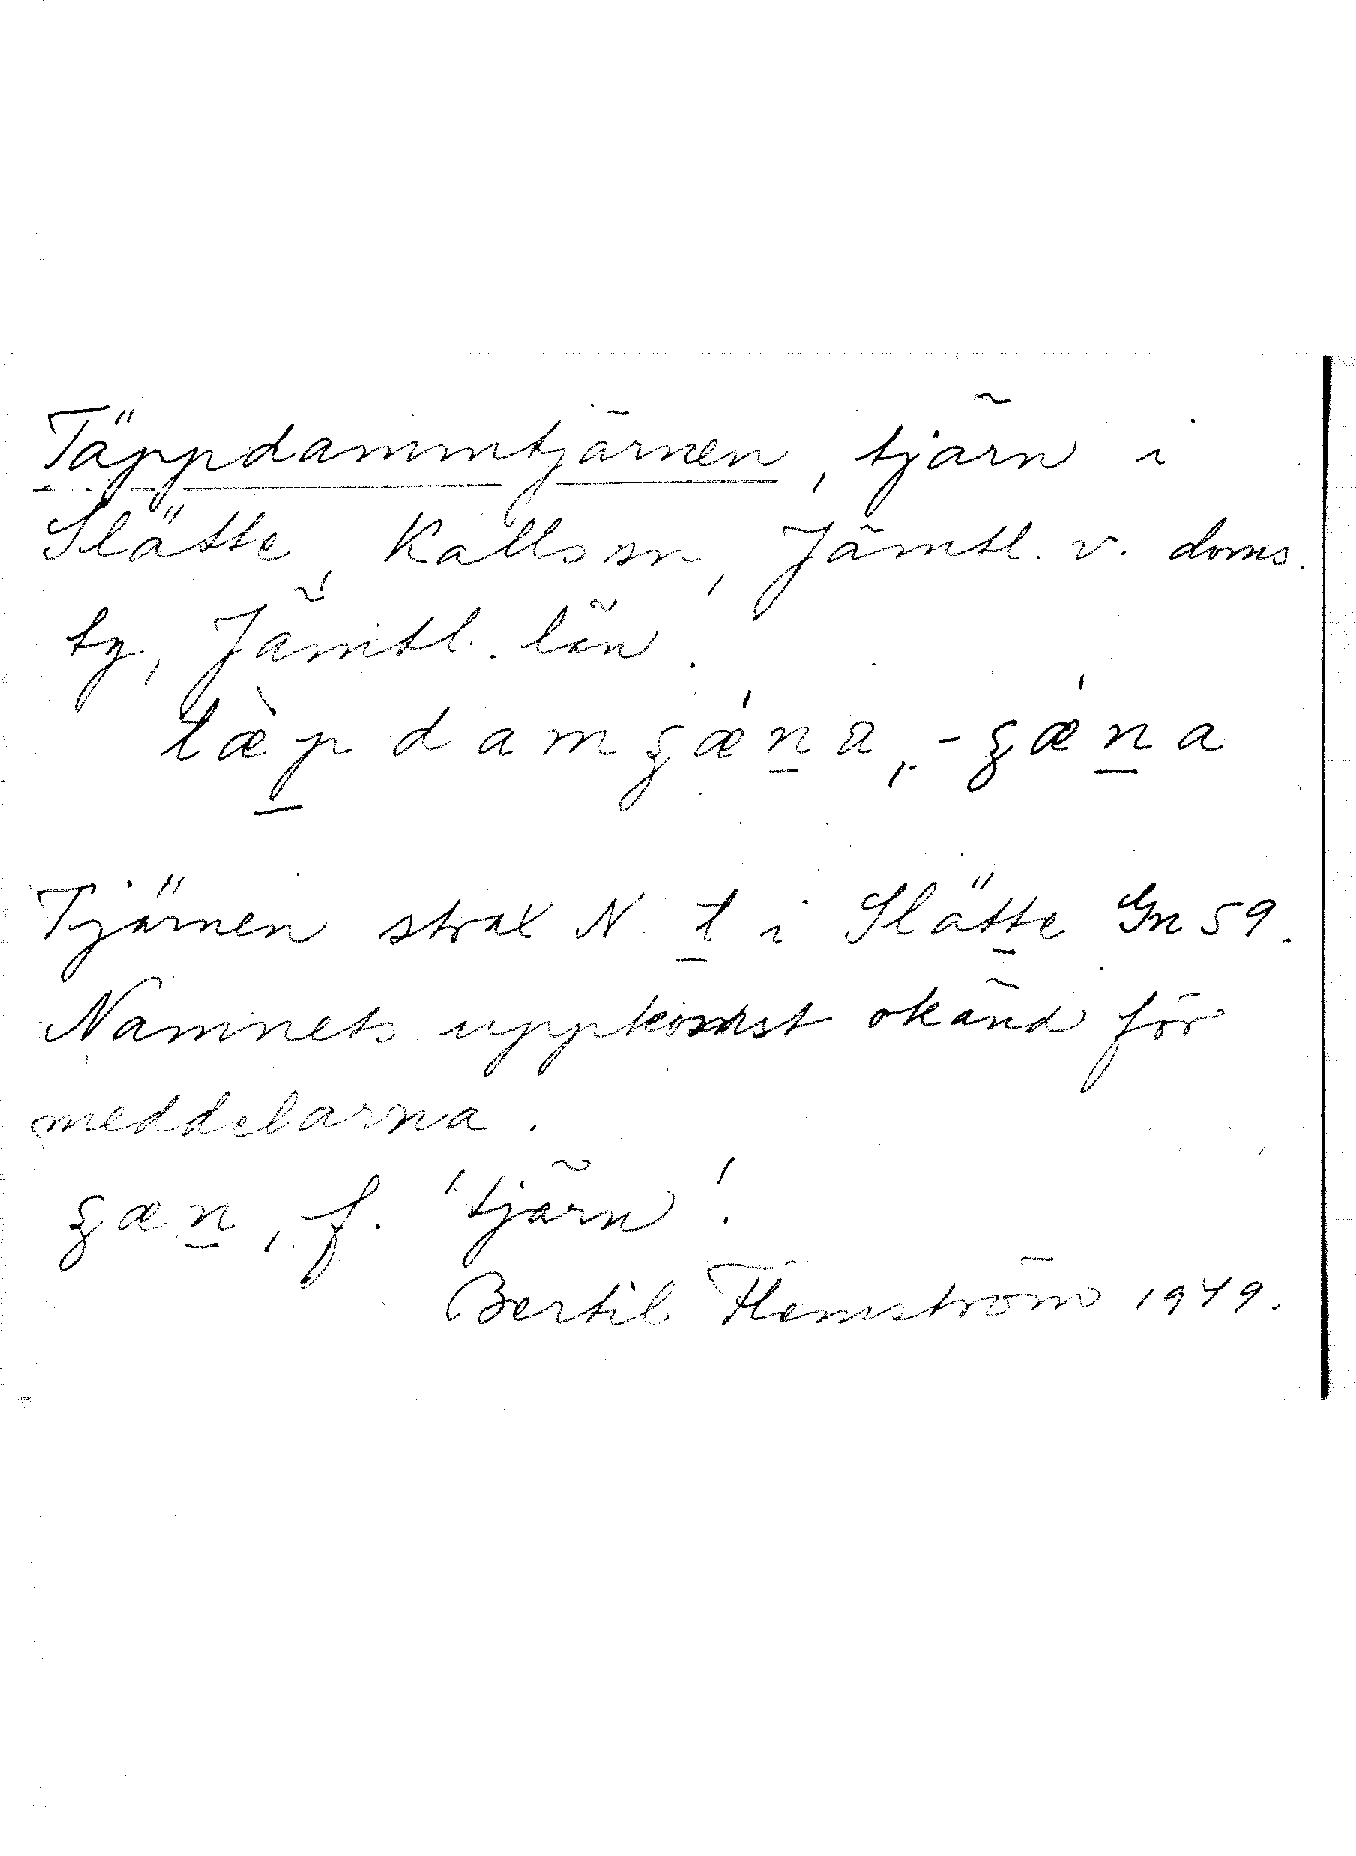 Täppdammtjärnen, tjärn i
Slätte, Kallssn, Jämtl. v. doms.
tg, Jämtl. län.
tæ̀p damʒǽna, -ʒǽna
Tjärnen strax N. t i Slätte Gn 59.
Namnets uppkomst okänd för
meddelarna.
ʒæn, f. 'tjärn'.
Bertil Flemström 1949.